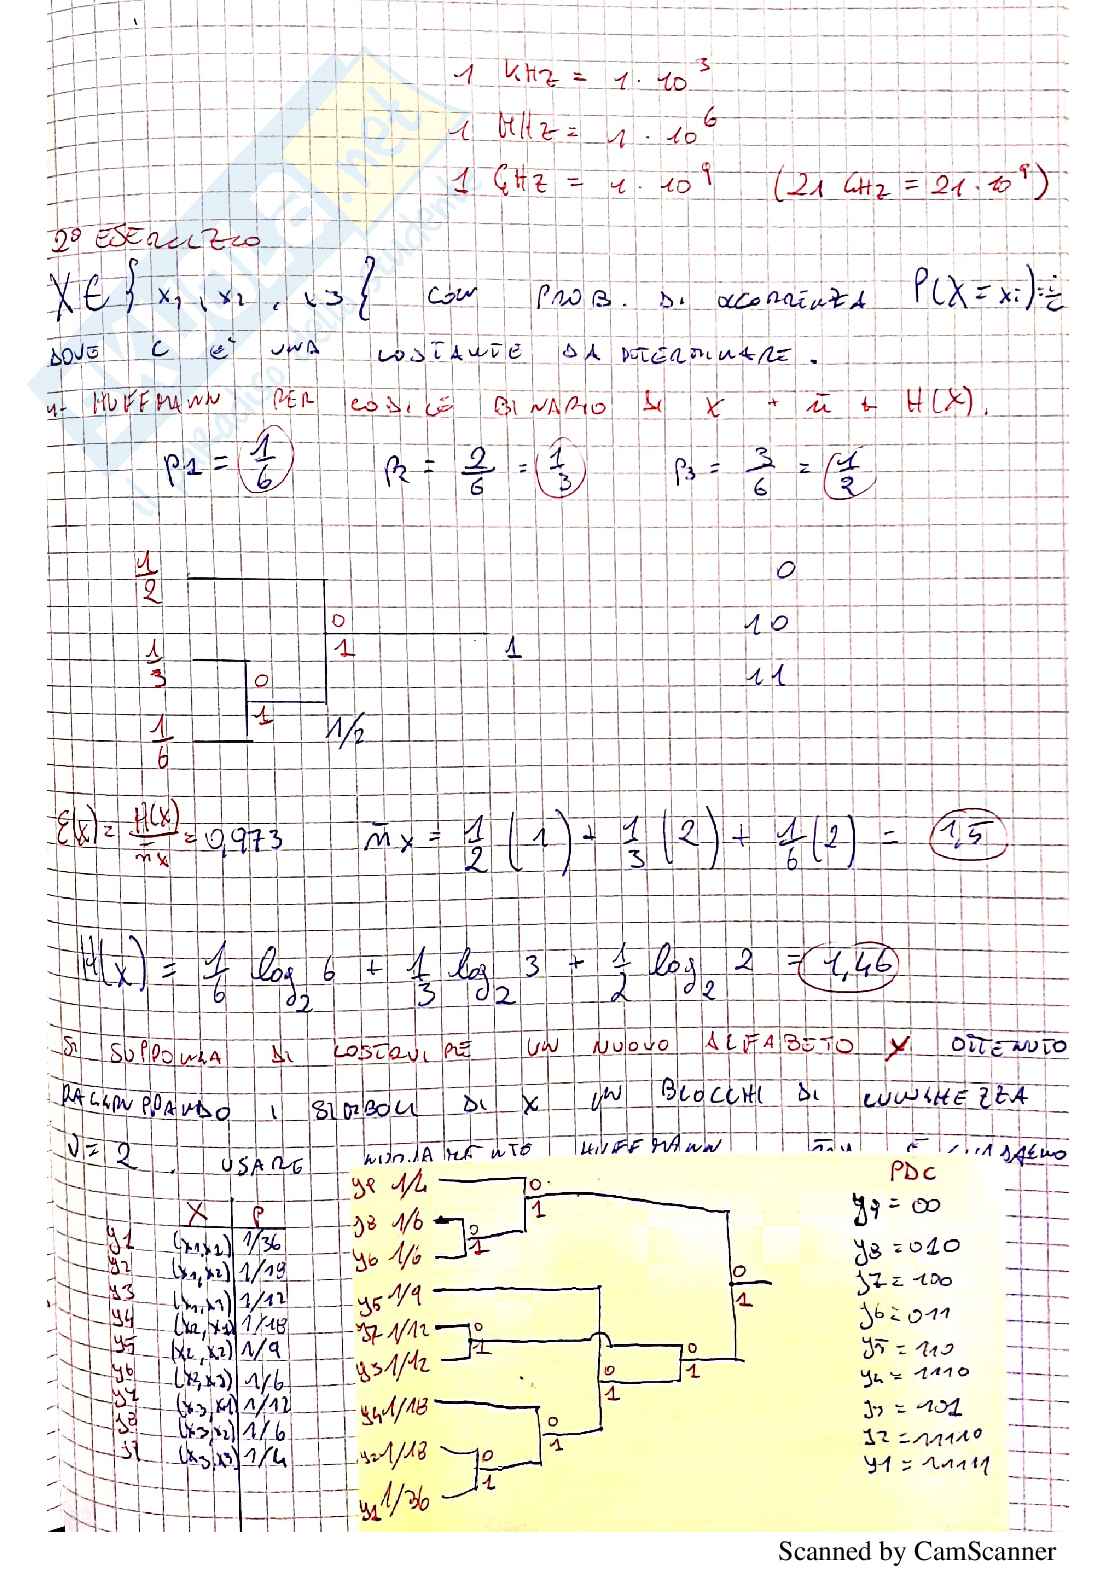 1 KHZ = 1 · 10³
1 MHZ = 1 · 10⁶
1 GHZ = 1 · 10⁹ (21 GHZ = 21 · 10⁹)
2° ESERCIZIO
X ∈ } x1, x2, x3 { CON PROB. DI OCCORRENZA P(X = xi) = i/c
DOVE C E' UNA COSTANTE DA DETERMINARE.
HUFFMANN PER CODICE BINARIO DI X + n̄ + H(X).
p1 = 1/6 p2 = 2/6 = 1/3 p3 = 3/6 = 1/2
1/2 0
0 10
1/3 1 1
0 11
1
1/6 1/2
ξ(x) = H(X)/n̄x = 0,973 n̄x = 1/2 (1) + 1/3 (2) + 1/6 (2) = 1,5
H(x) = 1/6 log2 6 + 1/3 log2 3 + 1/2 log2 2 = 1,46
SI SUPPONGA DI COSTRUIRE UN NUOVO ALFABETO Y OTTENUTO
RAGGRUPPANDO I SIMBOLI DI X IN BLOCCHI DI LUNGHEZZA
V = 2. USARE HUFFMANN
X P
y1 (x1,x2) 1/36
y2 (x1,x2) 1/18
y3 (x1,x3) 1/12
y4 (x2,x1) 1/18
y5 (x2,x2) 1/9
y6 (x2,x3) 1/6
y7 (x3,x1) 1/12
y8 (x3,x2) 1/6
y9 (x3,x3) 1/4
y9 1/4 0 1
y8 1/6 0
y6 1/6 1
y5 1/9 0 1
y7 1/12 0
y3 1/12 1 0 1
0 1
y4 1/18 0 1
y2 1/18 0
y1 1/36 1
PDC
y9 = 00
y8 = 010
y7 = 100
y6 = 011
y5 = 110
y4 = 1110
y3 = 101
y2 = 11110
y1 = 11111
Scanned by CamScanner